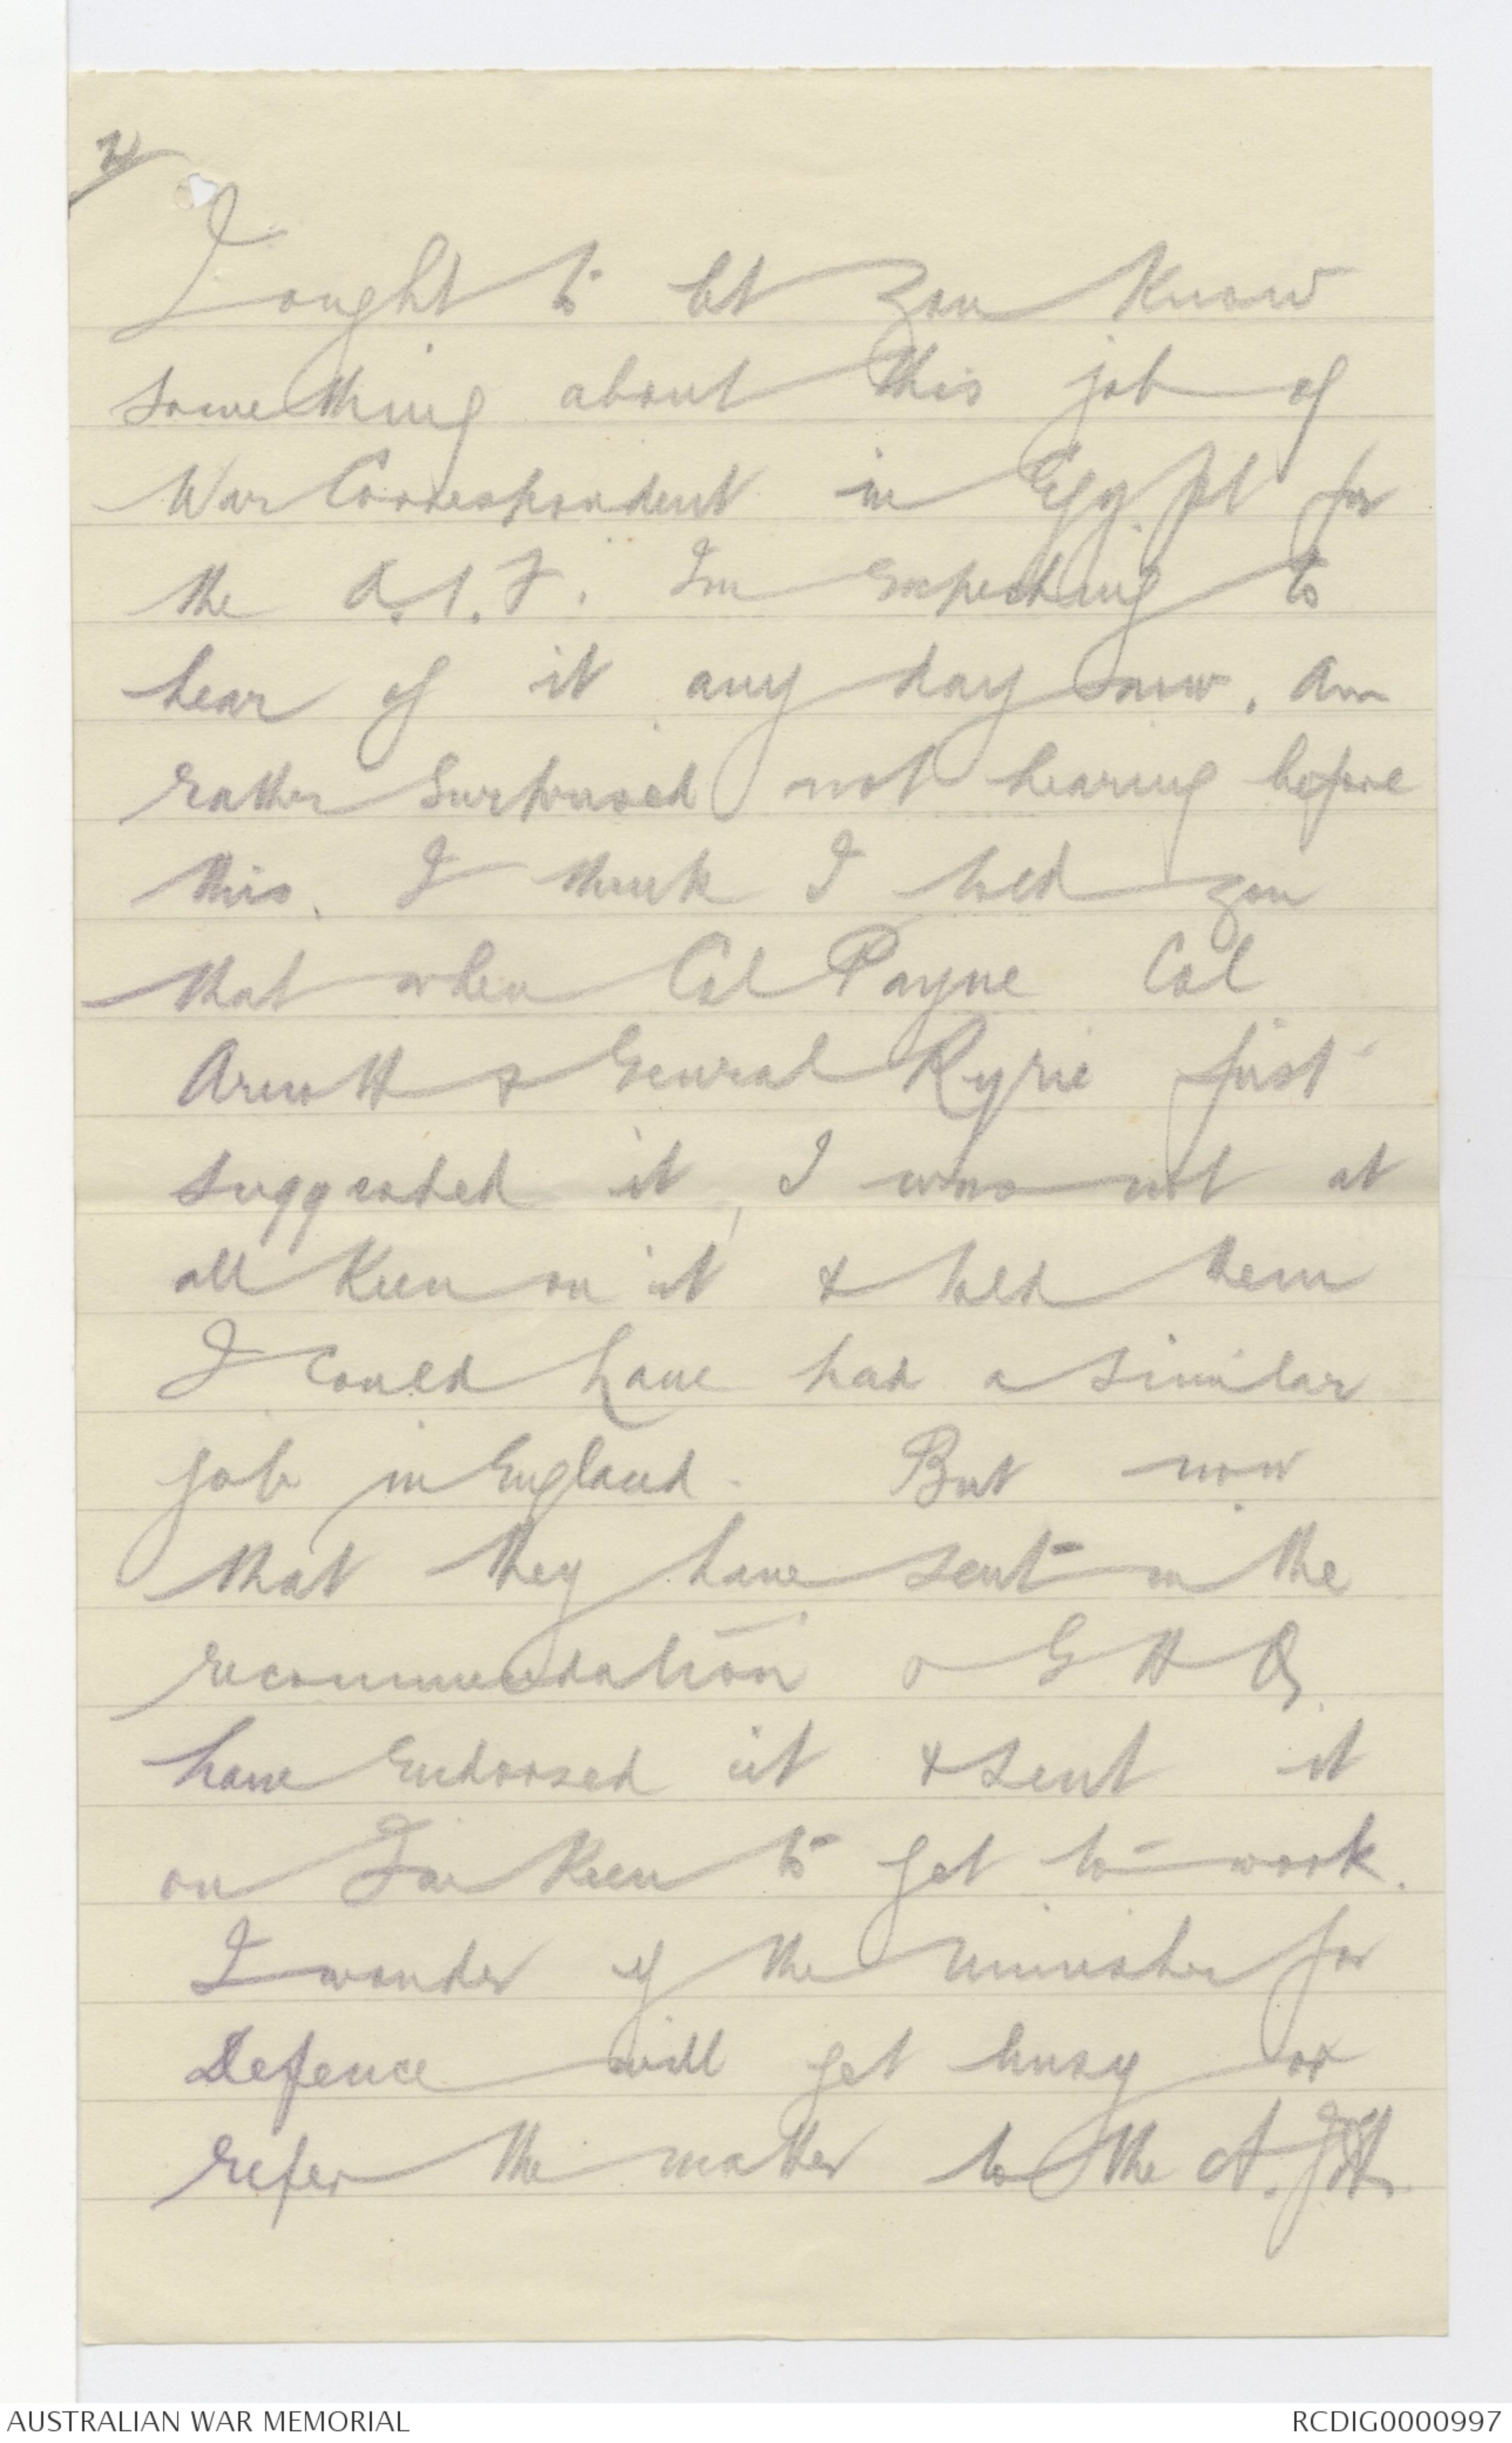 I ought to let you know
something about this job of
War Correspondent in Egypt for
the A.I.F. Im expecting to
hear of it any day now. Am
rather surprised not hearing before
this. I think I told you
that when Col Payne Col
Arnott & General Ryrie first
suggested it, I was not at
all keen on it & told them
I could have had a similar
job in England. But now
that they have sent in the
recommendation & G H Q
have endorsed it & sent it
on I'm keen to get to work.
I wonder if the minister for
Defence will get busy or
refer the matter to the A.
AUSTRALIAN WAR MEMORIAL
RCDIG0000997